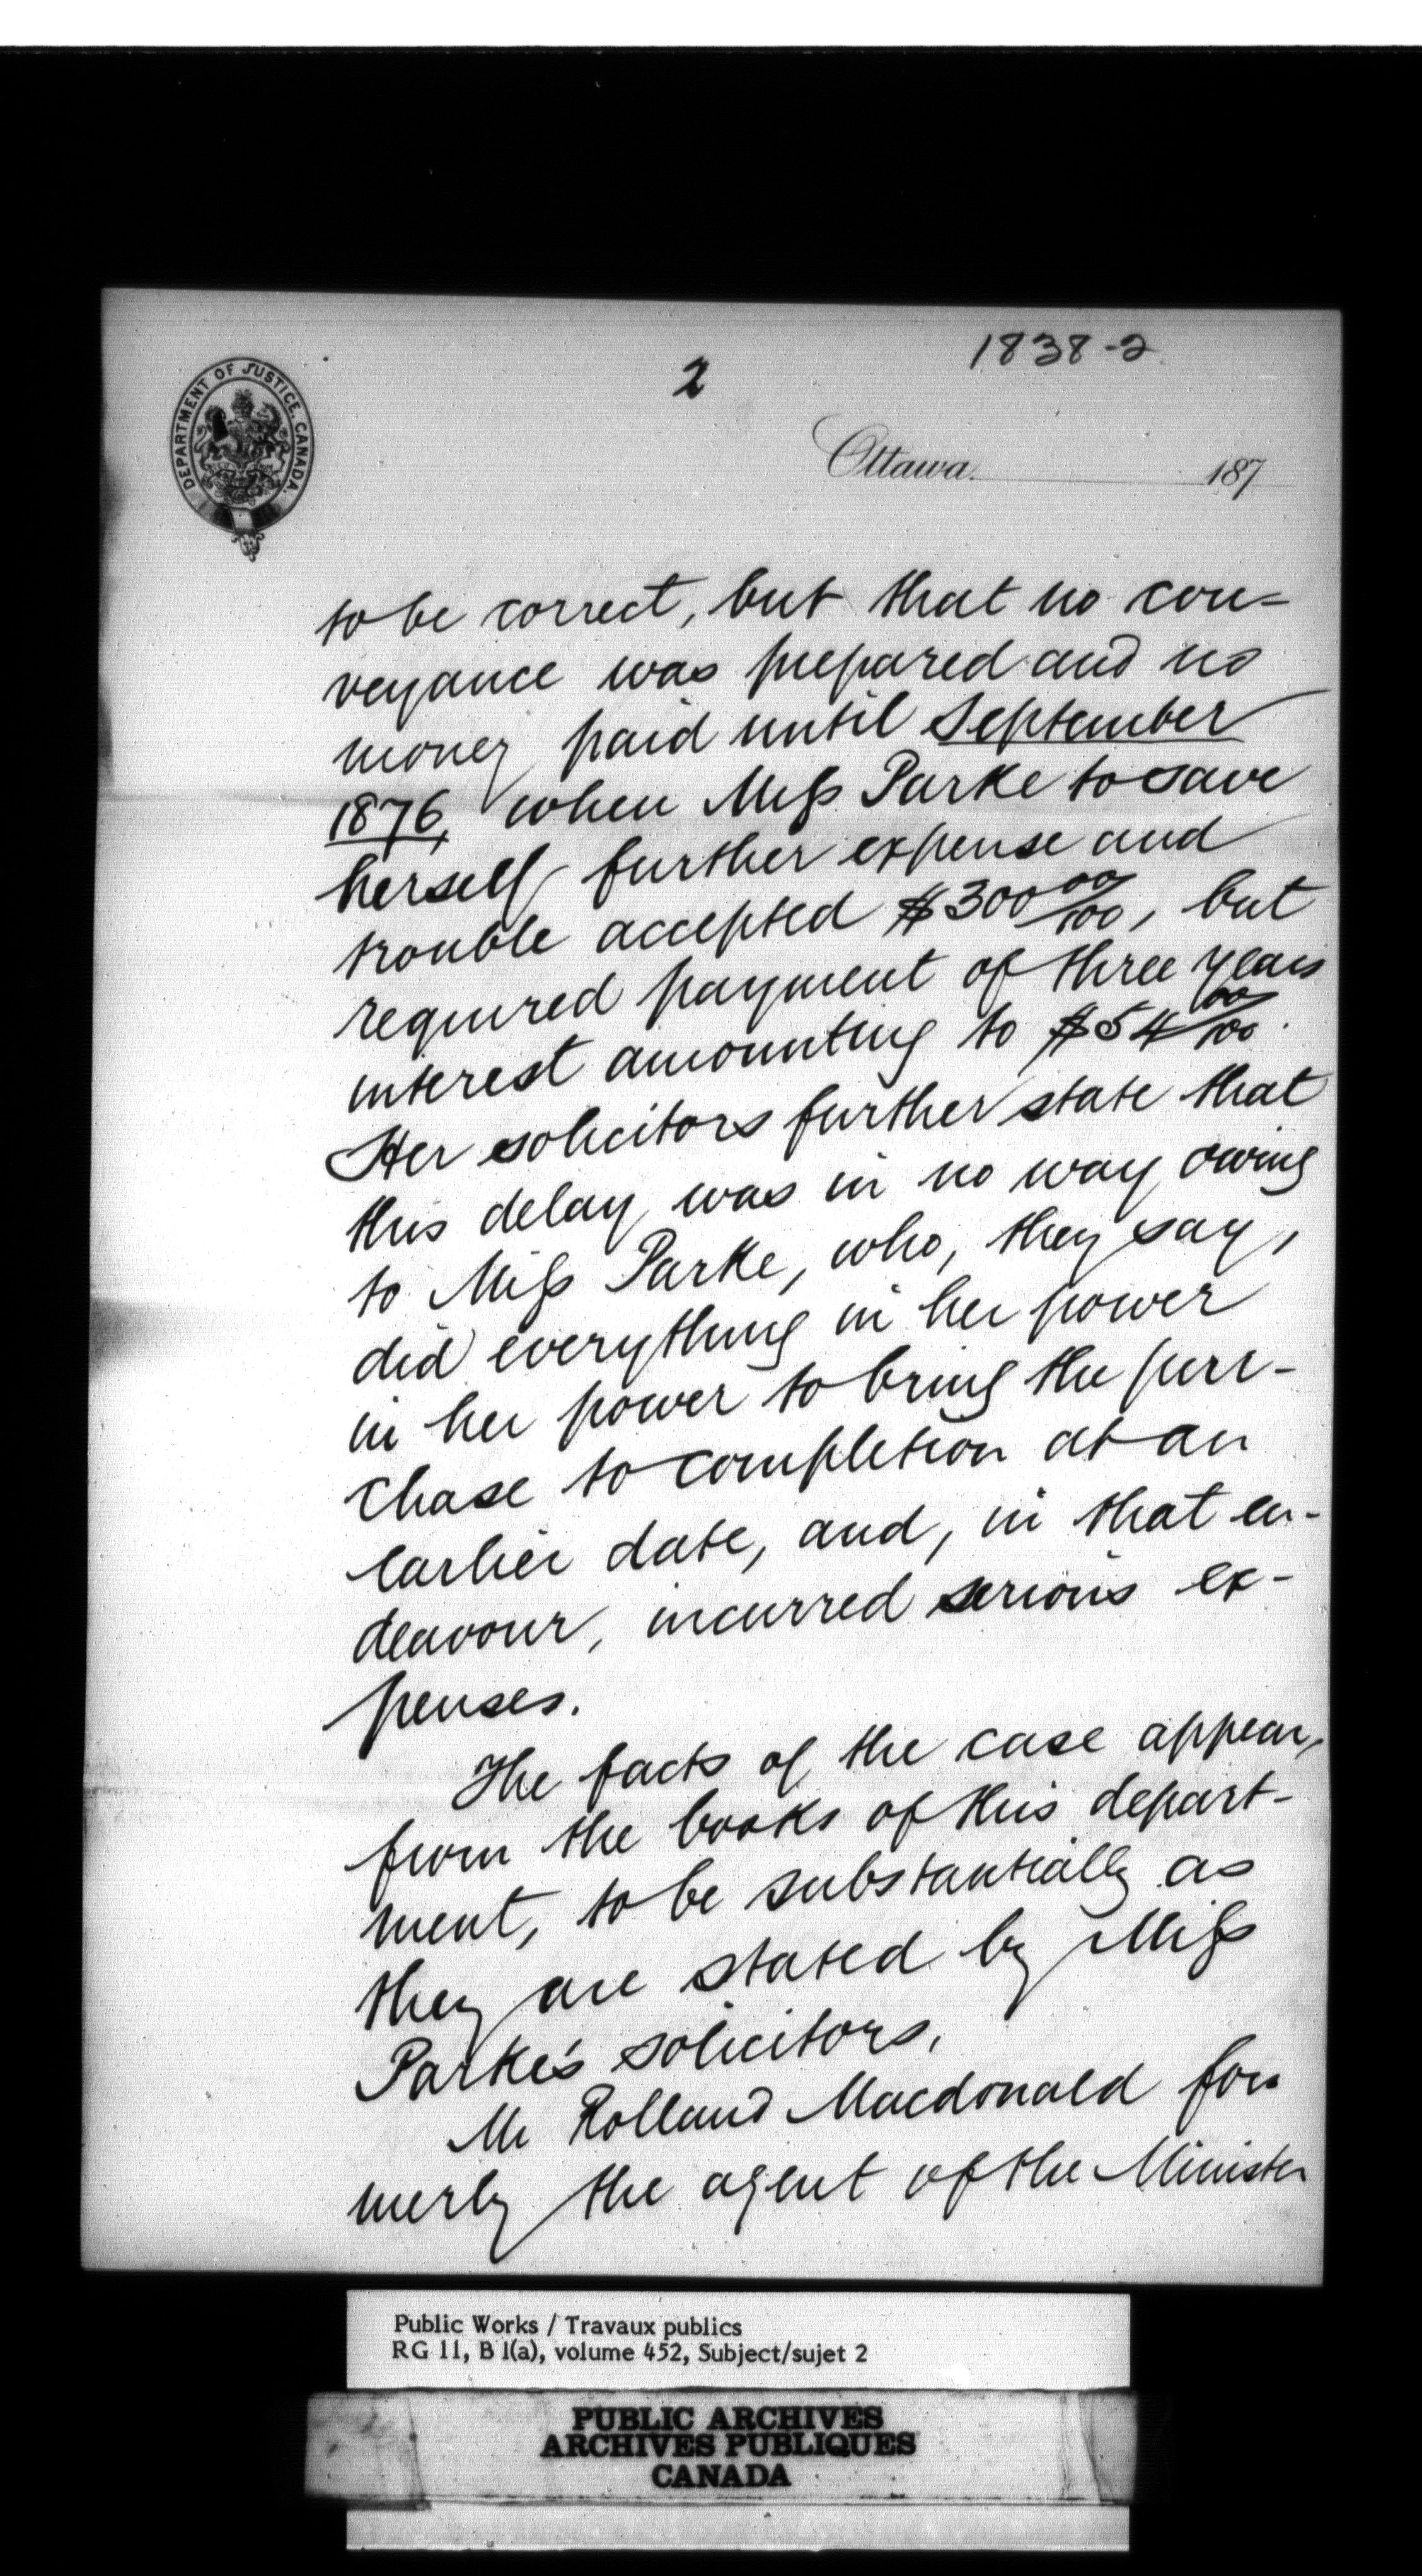 1838-2
2
DEPARTMENT OF JUSTICE, CANADA.
Ottawa. 187
to be correct, but that no con-
veyance was prepared and no
money paid until September
1876, when Miss Parke to save
herself further expense and
trouble accepted $300 00/100, but
required payment of three years
interest amounting to $54 00/100.
Her solicitors further state that
this delay was in no way owing
to Miss Parke, who, they say,
did everything in her power
in her power to bring the pur-
chase to completion at an
earlier date, and, in that en-
deavour, incurred serious ex-
penses.
The facts of the case appear,
from the books of this depart-
ment, to be substantially as
they are stated by Miss
Parke's solicitors.
Mr Rolland Macdonald for-
merly the agent of the Minister
Public Works / Travaux publics
RG 11, B 1(a), volume 452, Subject/sujet 2
PUBLIC ARCHIVES
ARCHIVES PUBLIQUES
CANADA